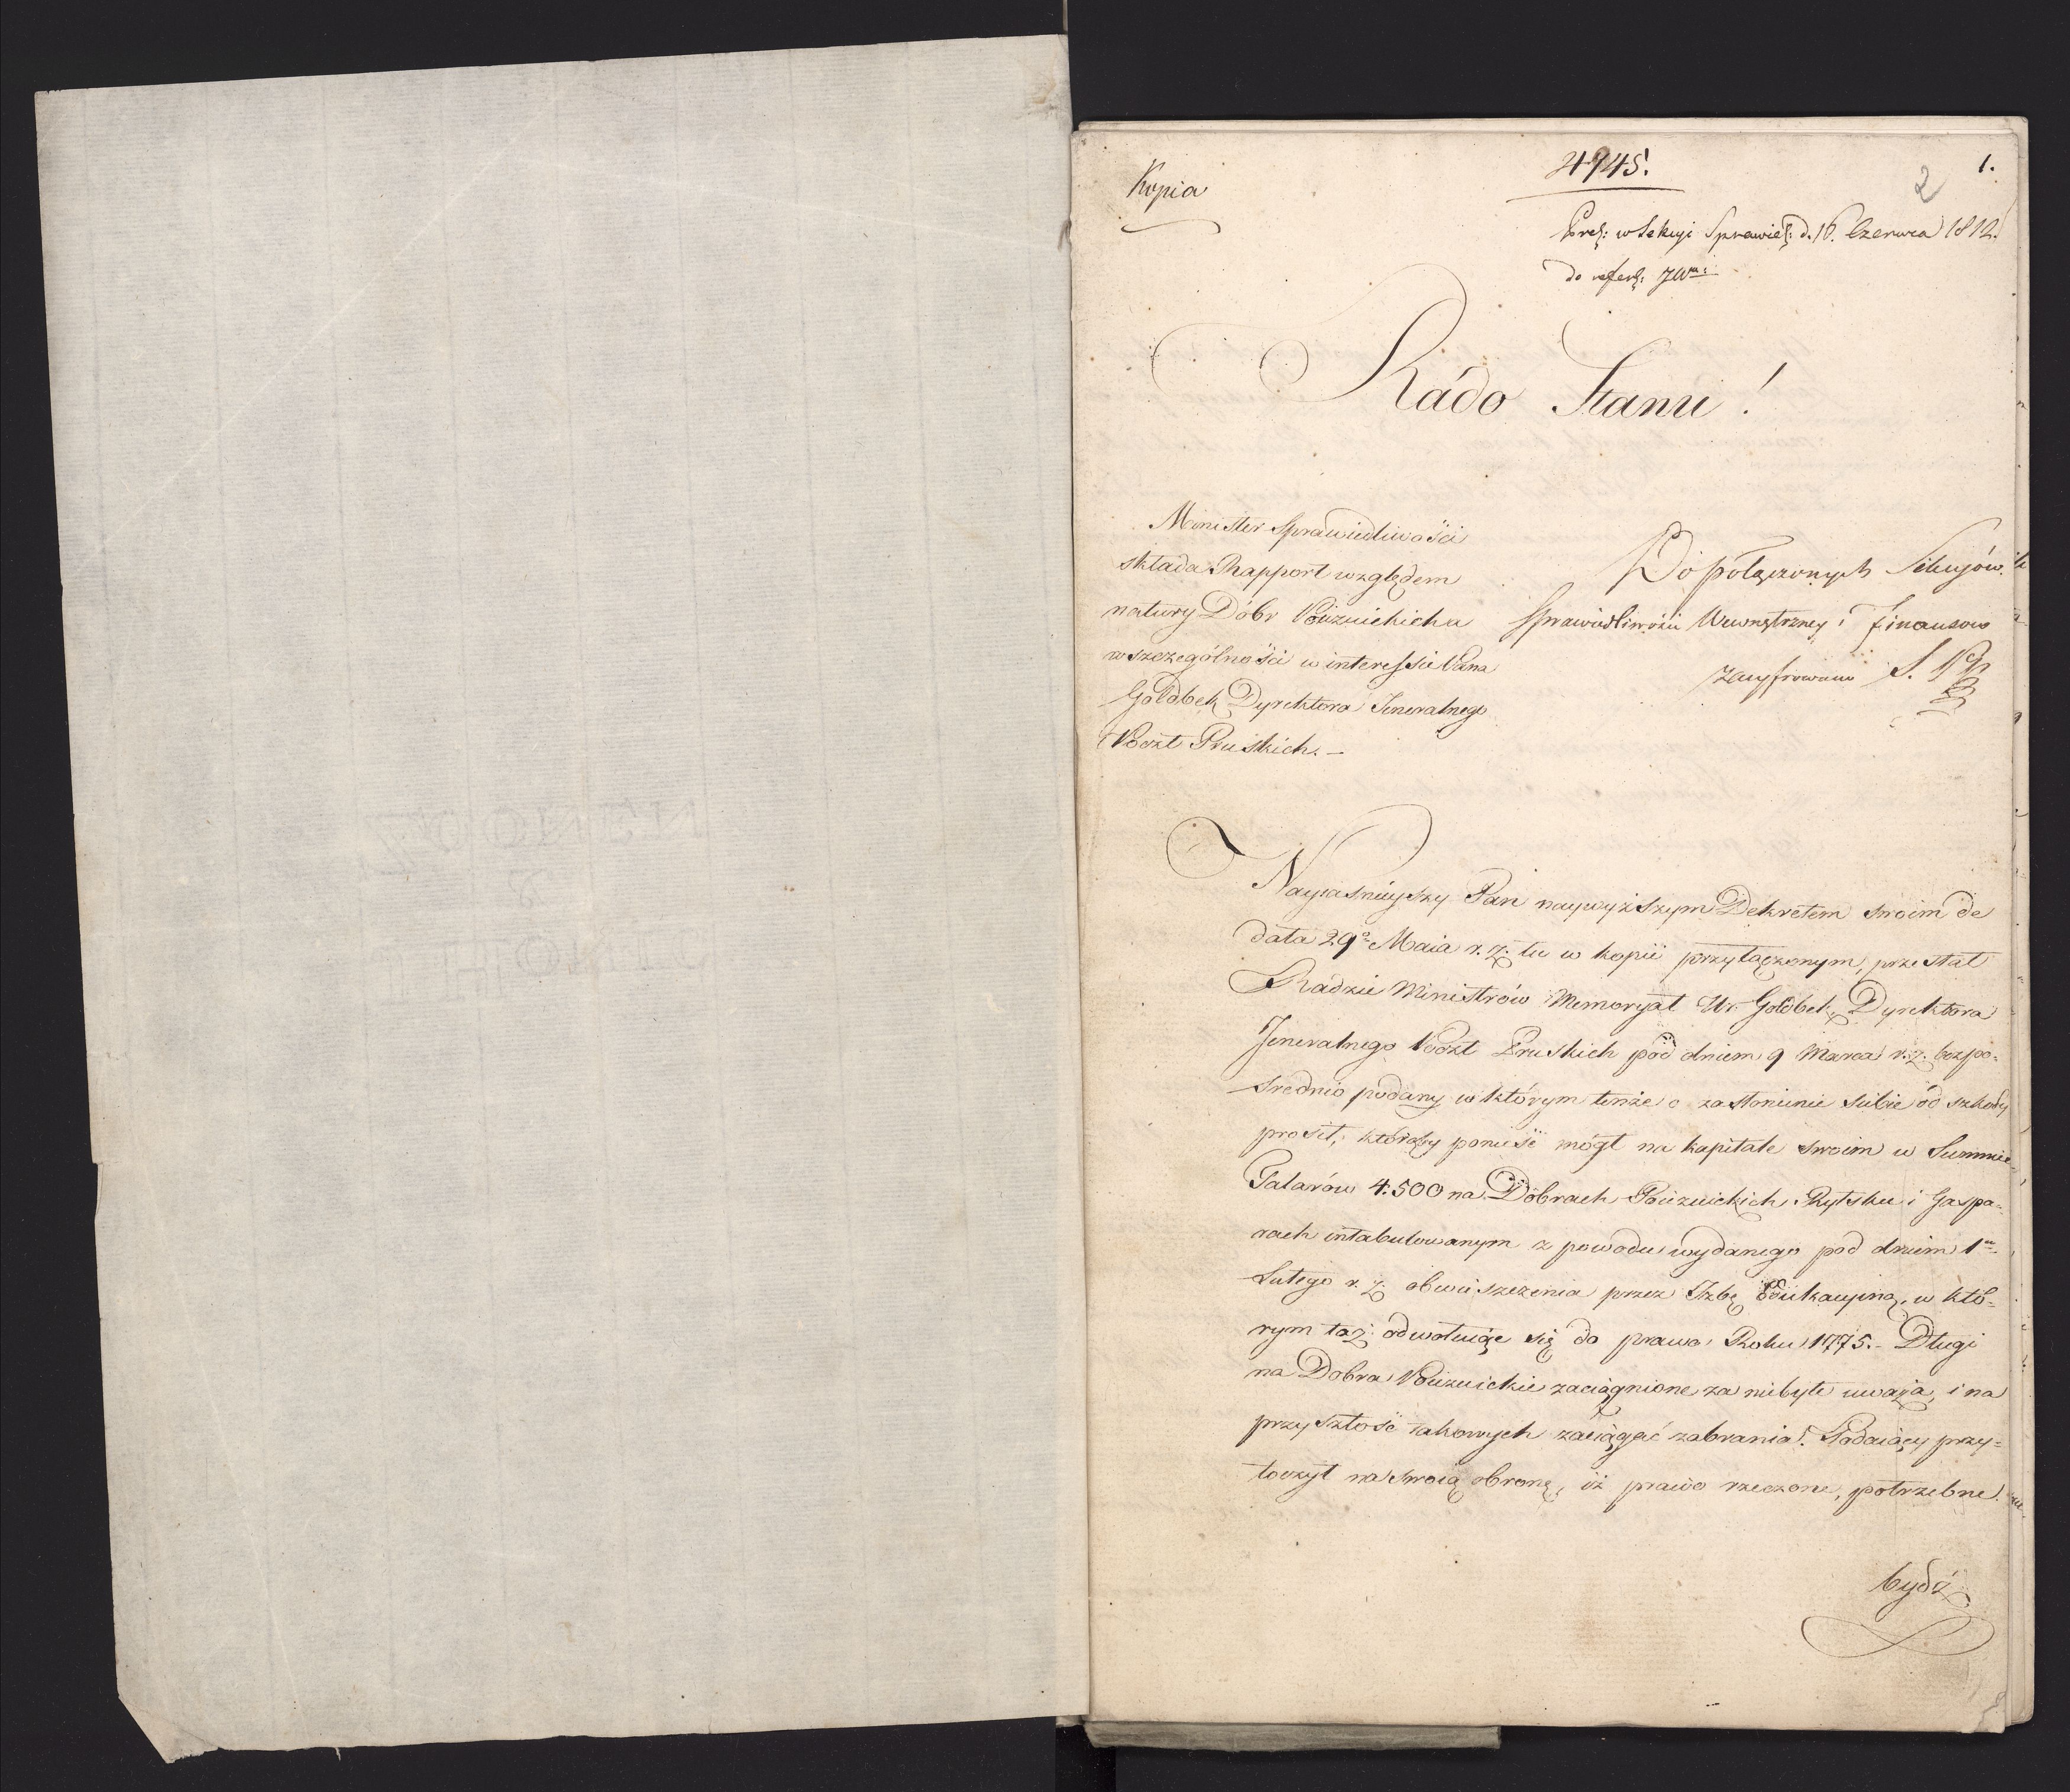 Kopia
4745.
1.
2
Prez: w Sekcyi Sprawied: d. 16. Czerwca 1812.
do refer:
Rádo Stanu!
Minister Sprawiedliwości
składa Rapport względem
natury Dóbr Pöiezuickich a
w szczególności w interessie Pana
Goldbek Dyrektora Jeneralnego
Poczt Pruskich. –
Do połączonych Sekcyów
Sprawiedliwości Wewnętrzney i Finansow
zacyfrowano S.
Nayiasnieyszy Pan naywyższym Dekretem swoim de
data 29º Maia r. z. tu w kopii przyłączonym, przesłał
Rádzie Ministrów Memoryał Ur Goldbek, Dyrektora
Jeneralnego Poczt Pruskich pod dniem 9 Marca r. z. bezpo=
srednio podany w którym tenże o zasłonienie siebie od szkody
prosił, któreby poniesć mógł na kapitale swoim w Summie
Talarów 4.500 na Dobrach Poiezuickich Rytsku i Gaspa=
rach intabulowanym z powodu wydanego pod dniem 1m
Lutego r. z. obwieszczenia przez Izbę Edukacyiną, w któ=
rym taż odwołuiąc się do prawa Roku 1775.– Długi
na Dobra Poiezuickie zaciągnione za niebyłe uważa, i na
przyszłość takowych zaciągać zabrania. Podaiący przy=
toczył na swoią obronę, iż prawo rzeczone, potrzebne
bydź